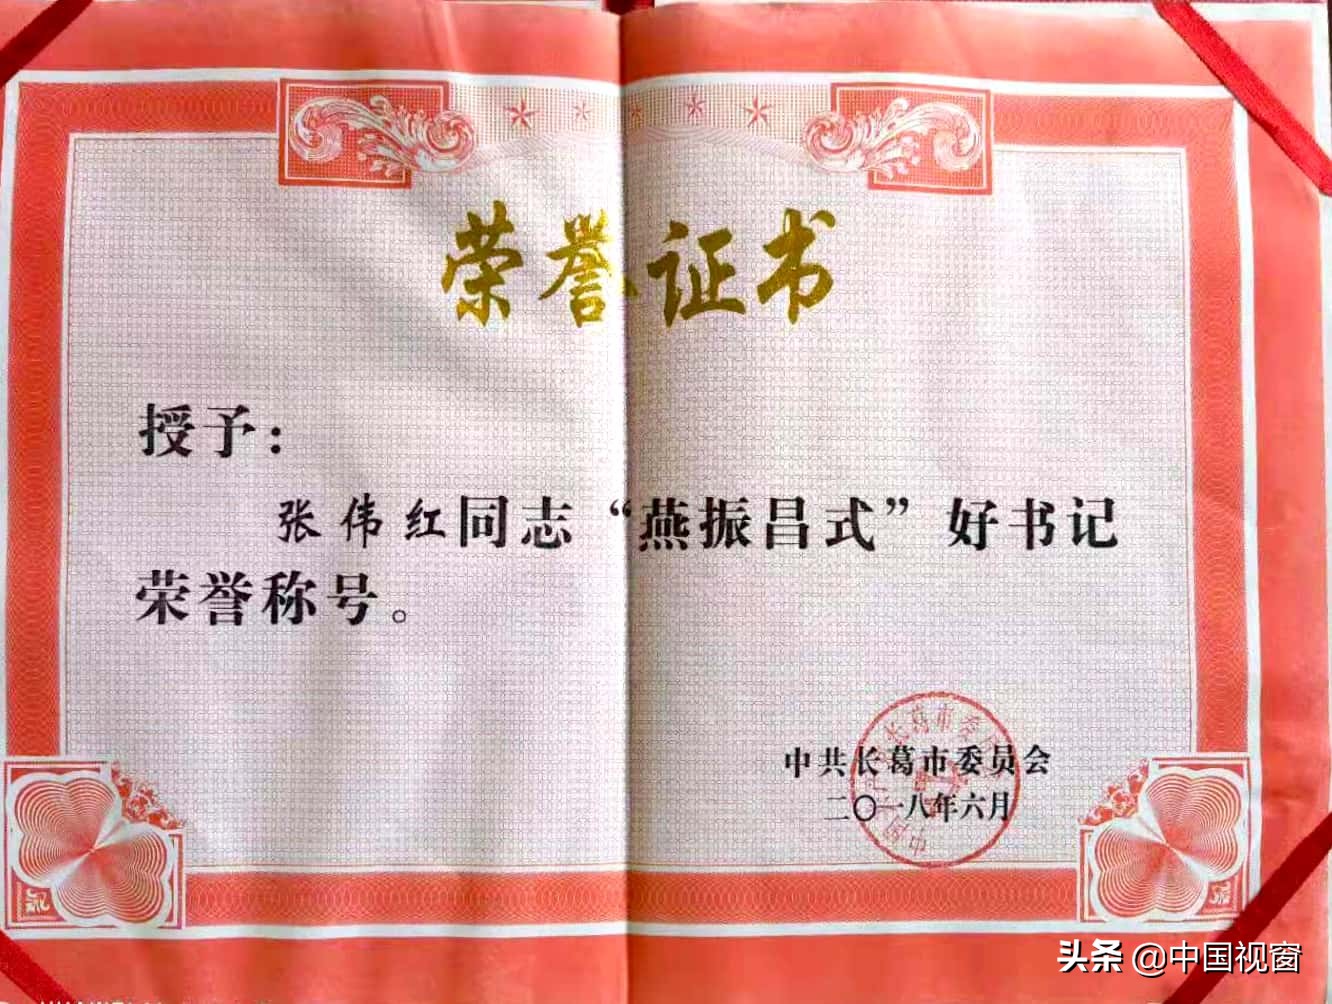 荣誉证书
授予：
张伟红同志“燕振昌式”好书记
荣誉称号。
中共长葛市委员会
二〇一八年六月
头条 @中国视窗